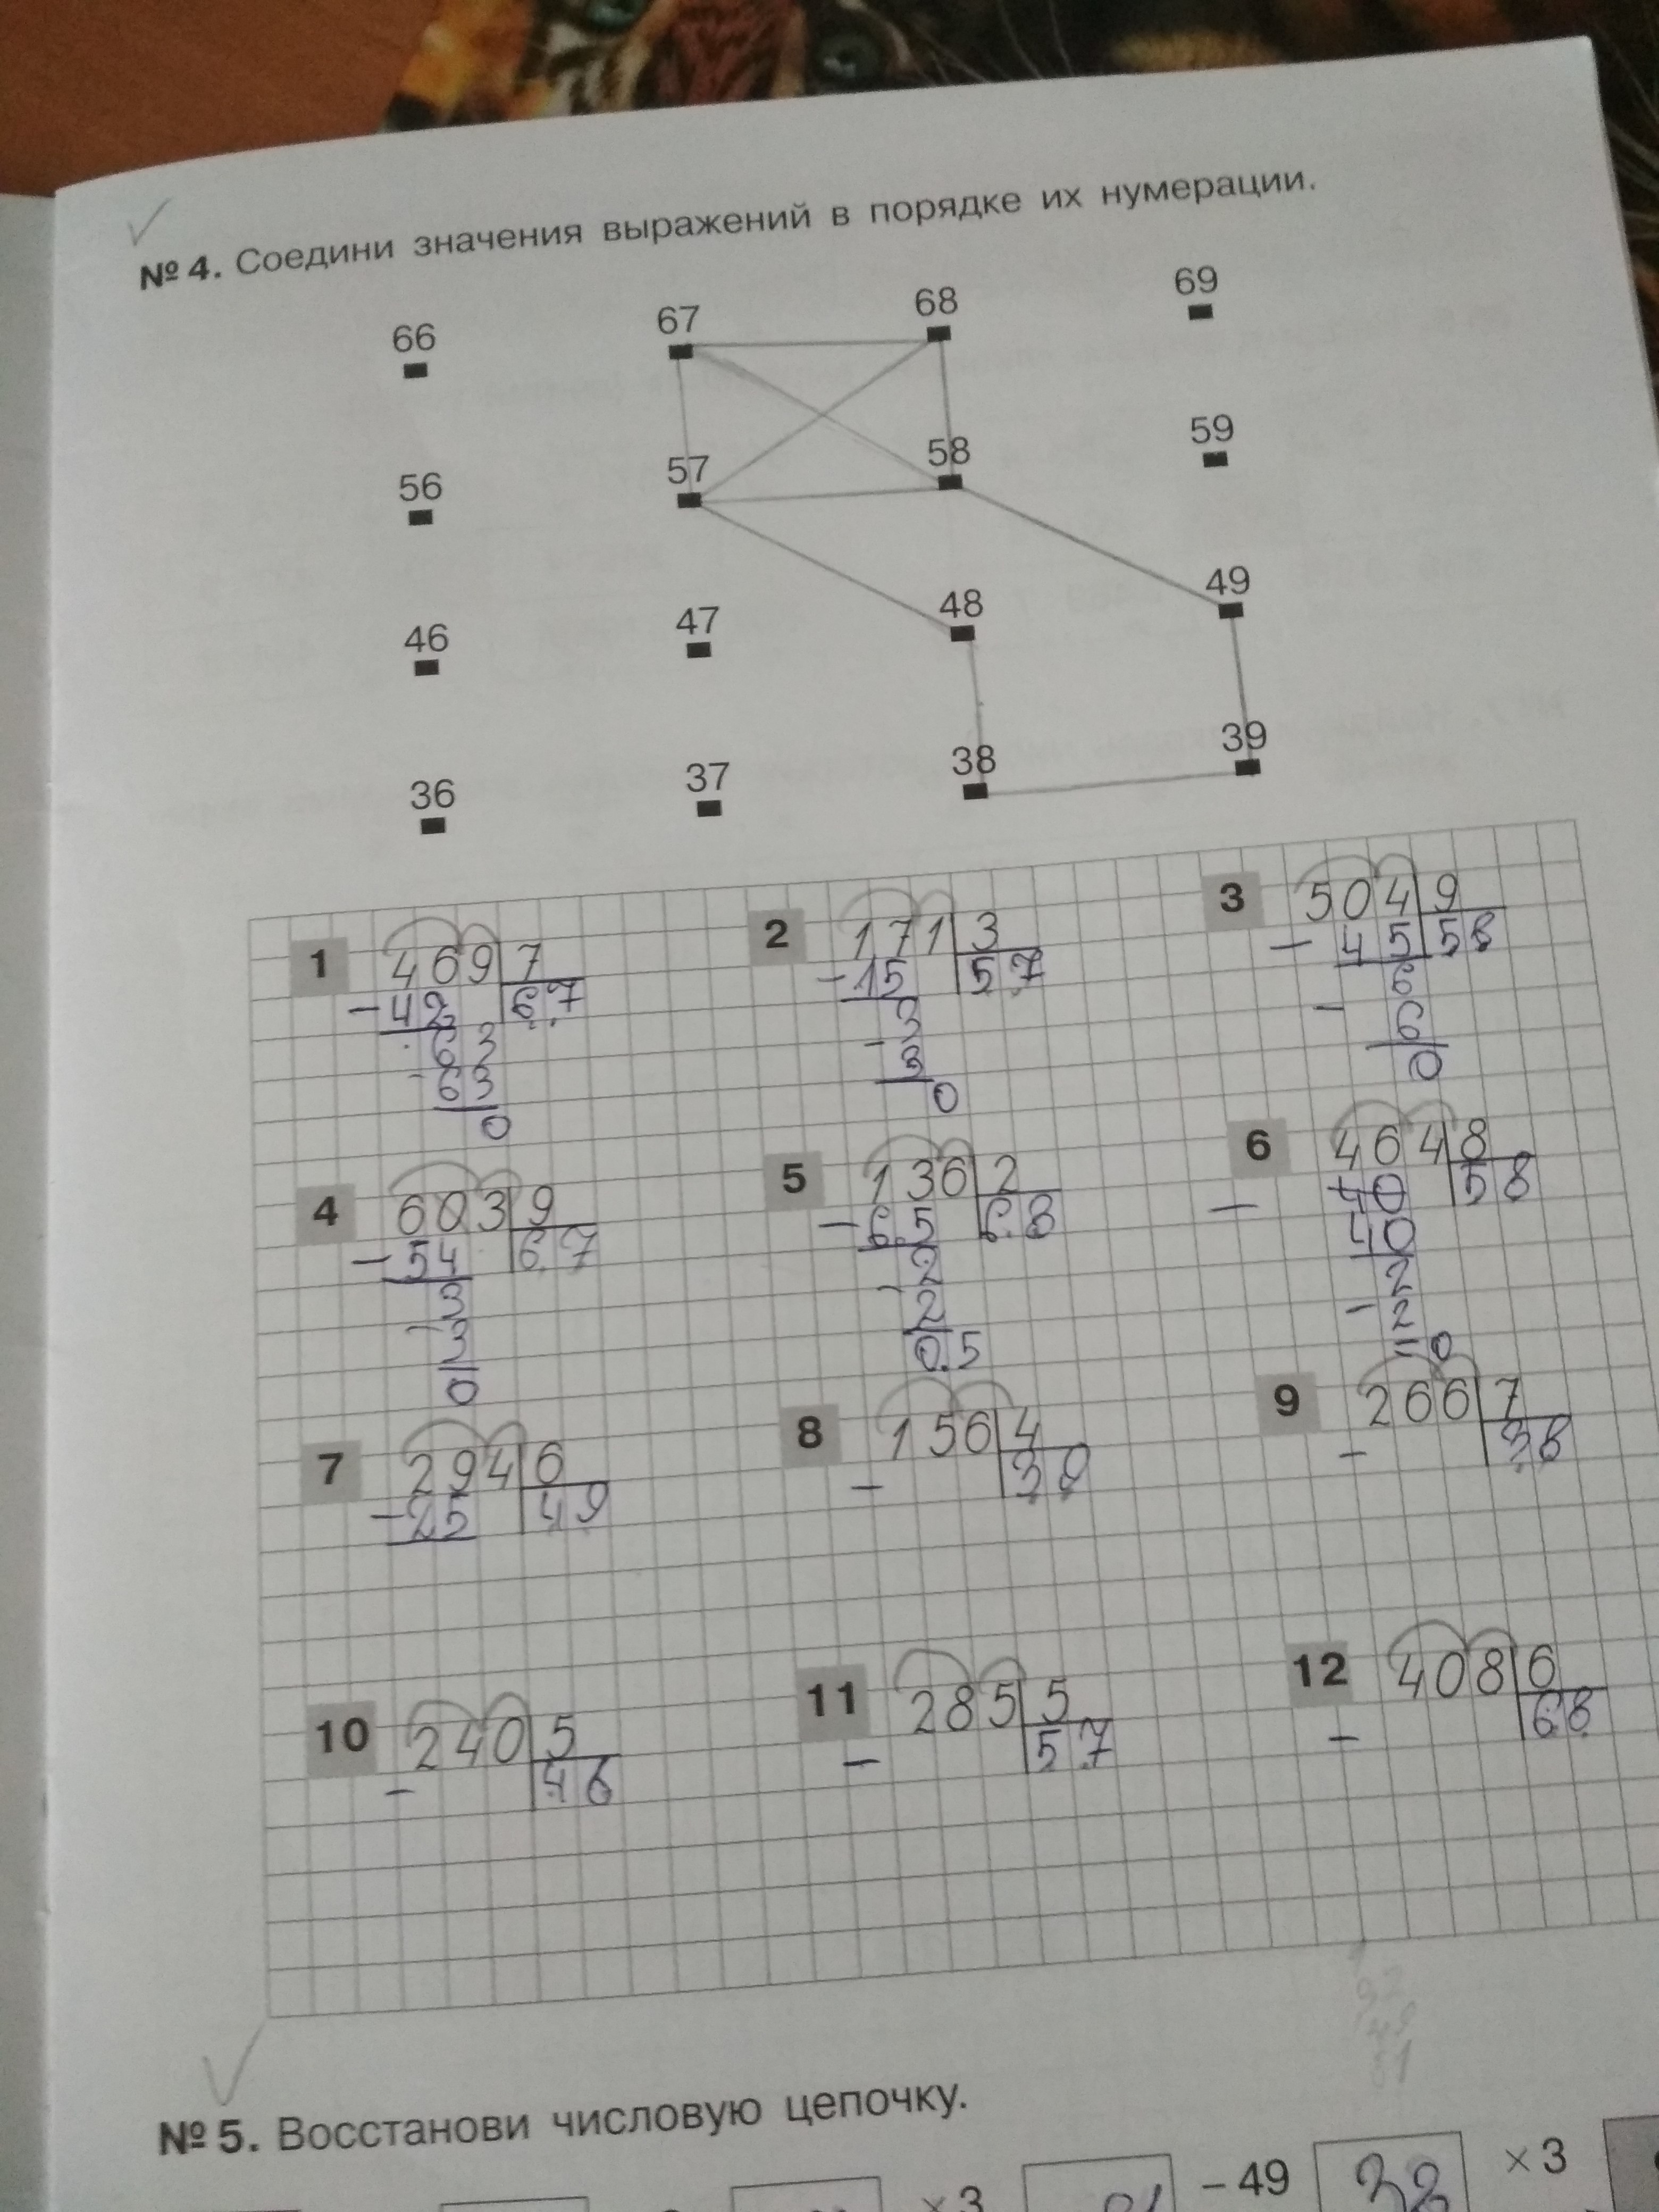 № 4. Соедини значения выражений в порядке их нумерации.
66 67 68 69
56 57 58 59
46 47 48 49
36 37 38 39
1 469 7
- 42 67
63
- 63
0
2 171 3
- 15 57
3
0
3 504 9
- 45 58
6
- 6
0
4 603 9
- 54 67
3
- 3
0
5 136 2
- 6.5 68
2
- 2
0.5
6 464 8
- 40 58
40
2
- 2
0
7 294 6
- 25 49
8 156 4
-
9 266 7
- 38
10 240 5
-
11 285 5
- 57
12 408 6
- 68
№ 5. Восстанови числовую цепочку.
×3 - 49 ×3